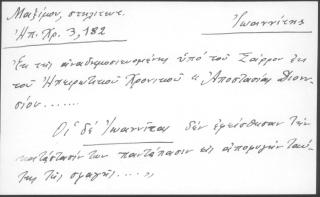 Μαξίμου, στηλιτευτ.
Ἠπ. Χρ. 3, 182
Ἰωαννίτης
Ἐκ τῆς ἀναδημοσιευομένης ὑπό τοῦ Σάρρου ἐκ
τοῦ Ἠπειρωτικοῦ Χρονικοῦ "Ἀποστασία Διονυ-
σίου......
Οἱ δέ Ἰωαννῖται δέν ἐφείσθησαν τήν
κατάστασίν των παντάπασιν εἰς ἀποφυγήν ταύ-
της τῆς σφαγῆς....,